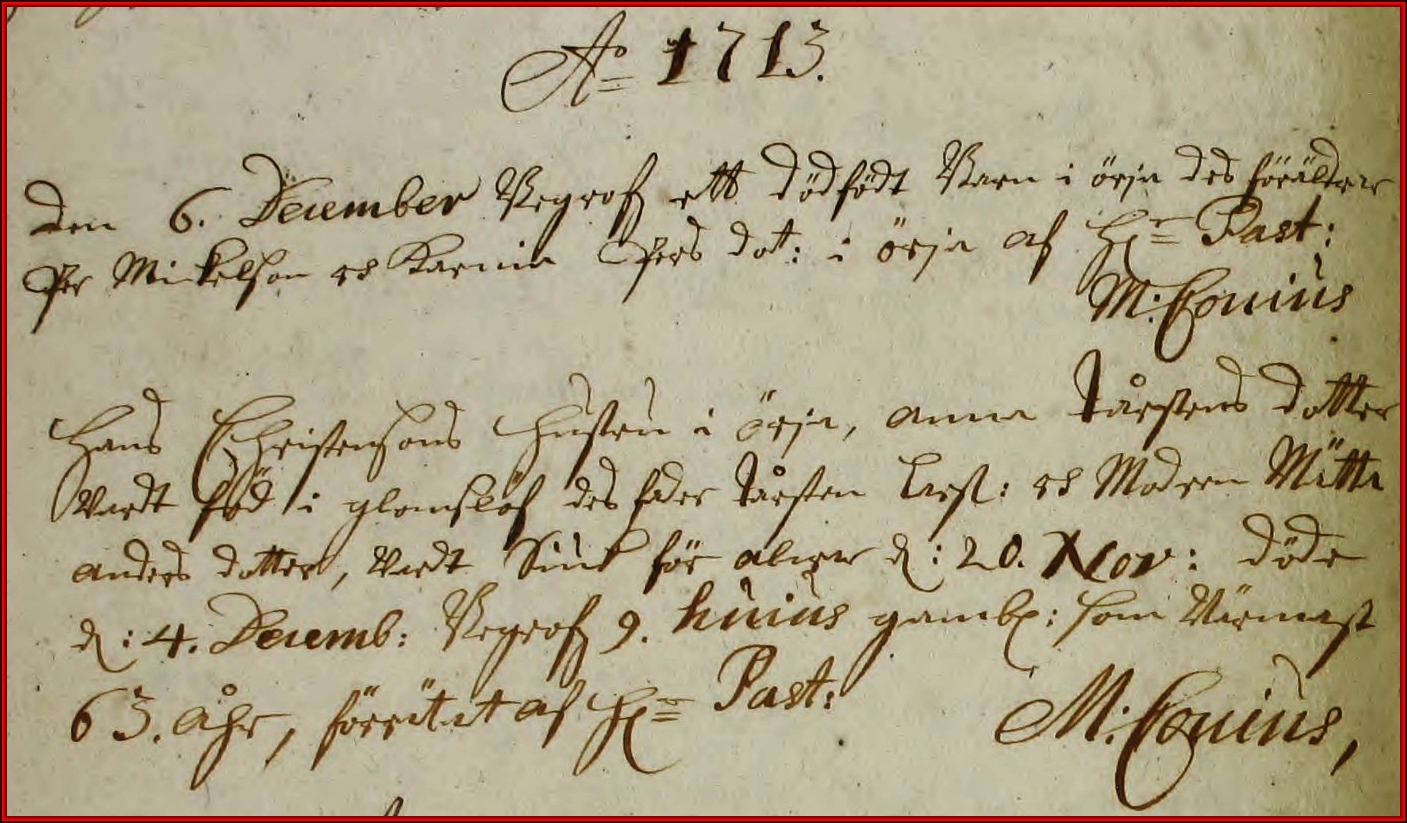 Ao 1713.
Den 6. December Begrofz ett dödfödt Barn i örja des föräldrar
Per Mickelson och Karina Pers dot: i örja af Hr Past:
M: Conius
Hans Christensons Hustru i örja, anna Tårstens dotter
Wardt född i glomslöf des fader Tårsten Larss: och Modren Mätta
anders dotter, Wardt Siuk för d: 20. Nov: döde
d: 4. Decemb: Begrofz 9. huius gambl: som Närmast
63. åhr, förrätat af Hr Past: M: Conius,